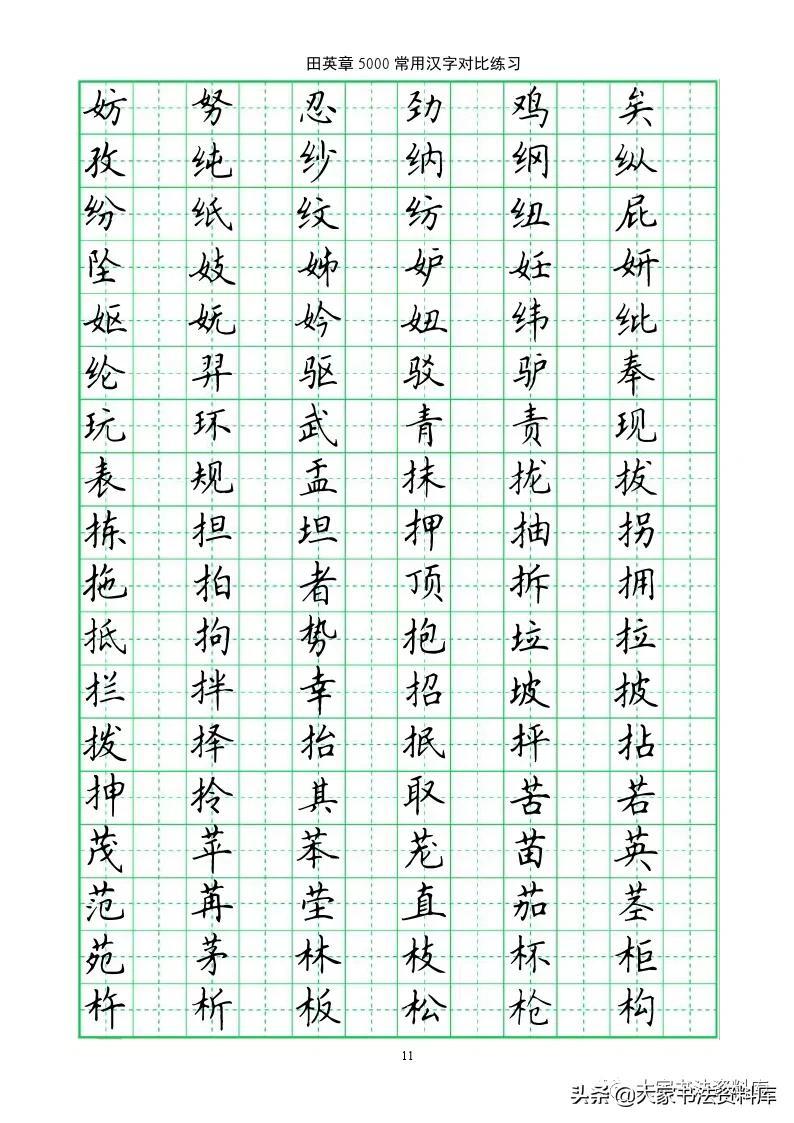 田英章5000常用汉字对比练习
妨 努 忍 劲 鸡 矣
孜 纯 纱 纳 纲 纵
纷 纸 纹 纺 纽 屁
坠 妓 姊 妒 妊 妍
妪 妩 妗 妞 纬 纰
纶 羿 驱 驳 驴 奉
玩 环 武 青 责 现
表 规 盂 抹 拢 拔
拣 担 坦 押 抽 拐
拖 拍 者 顶 拆 拥
抵 拘 势 抱 垃 拉
拦 拌 幸 招 坡 披
拨 择 抬 抿 抨 拈
抻 拎 其 取 苦 若
茂 苹 苯 茏 苗 英
范 苒 茔 直 茄 茎
苑 茅 林 枝 杯 柜
杵 析 板 松 枪 构
11
头条 @大家书法资料库